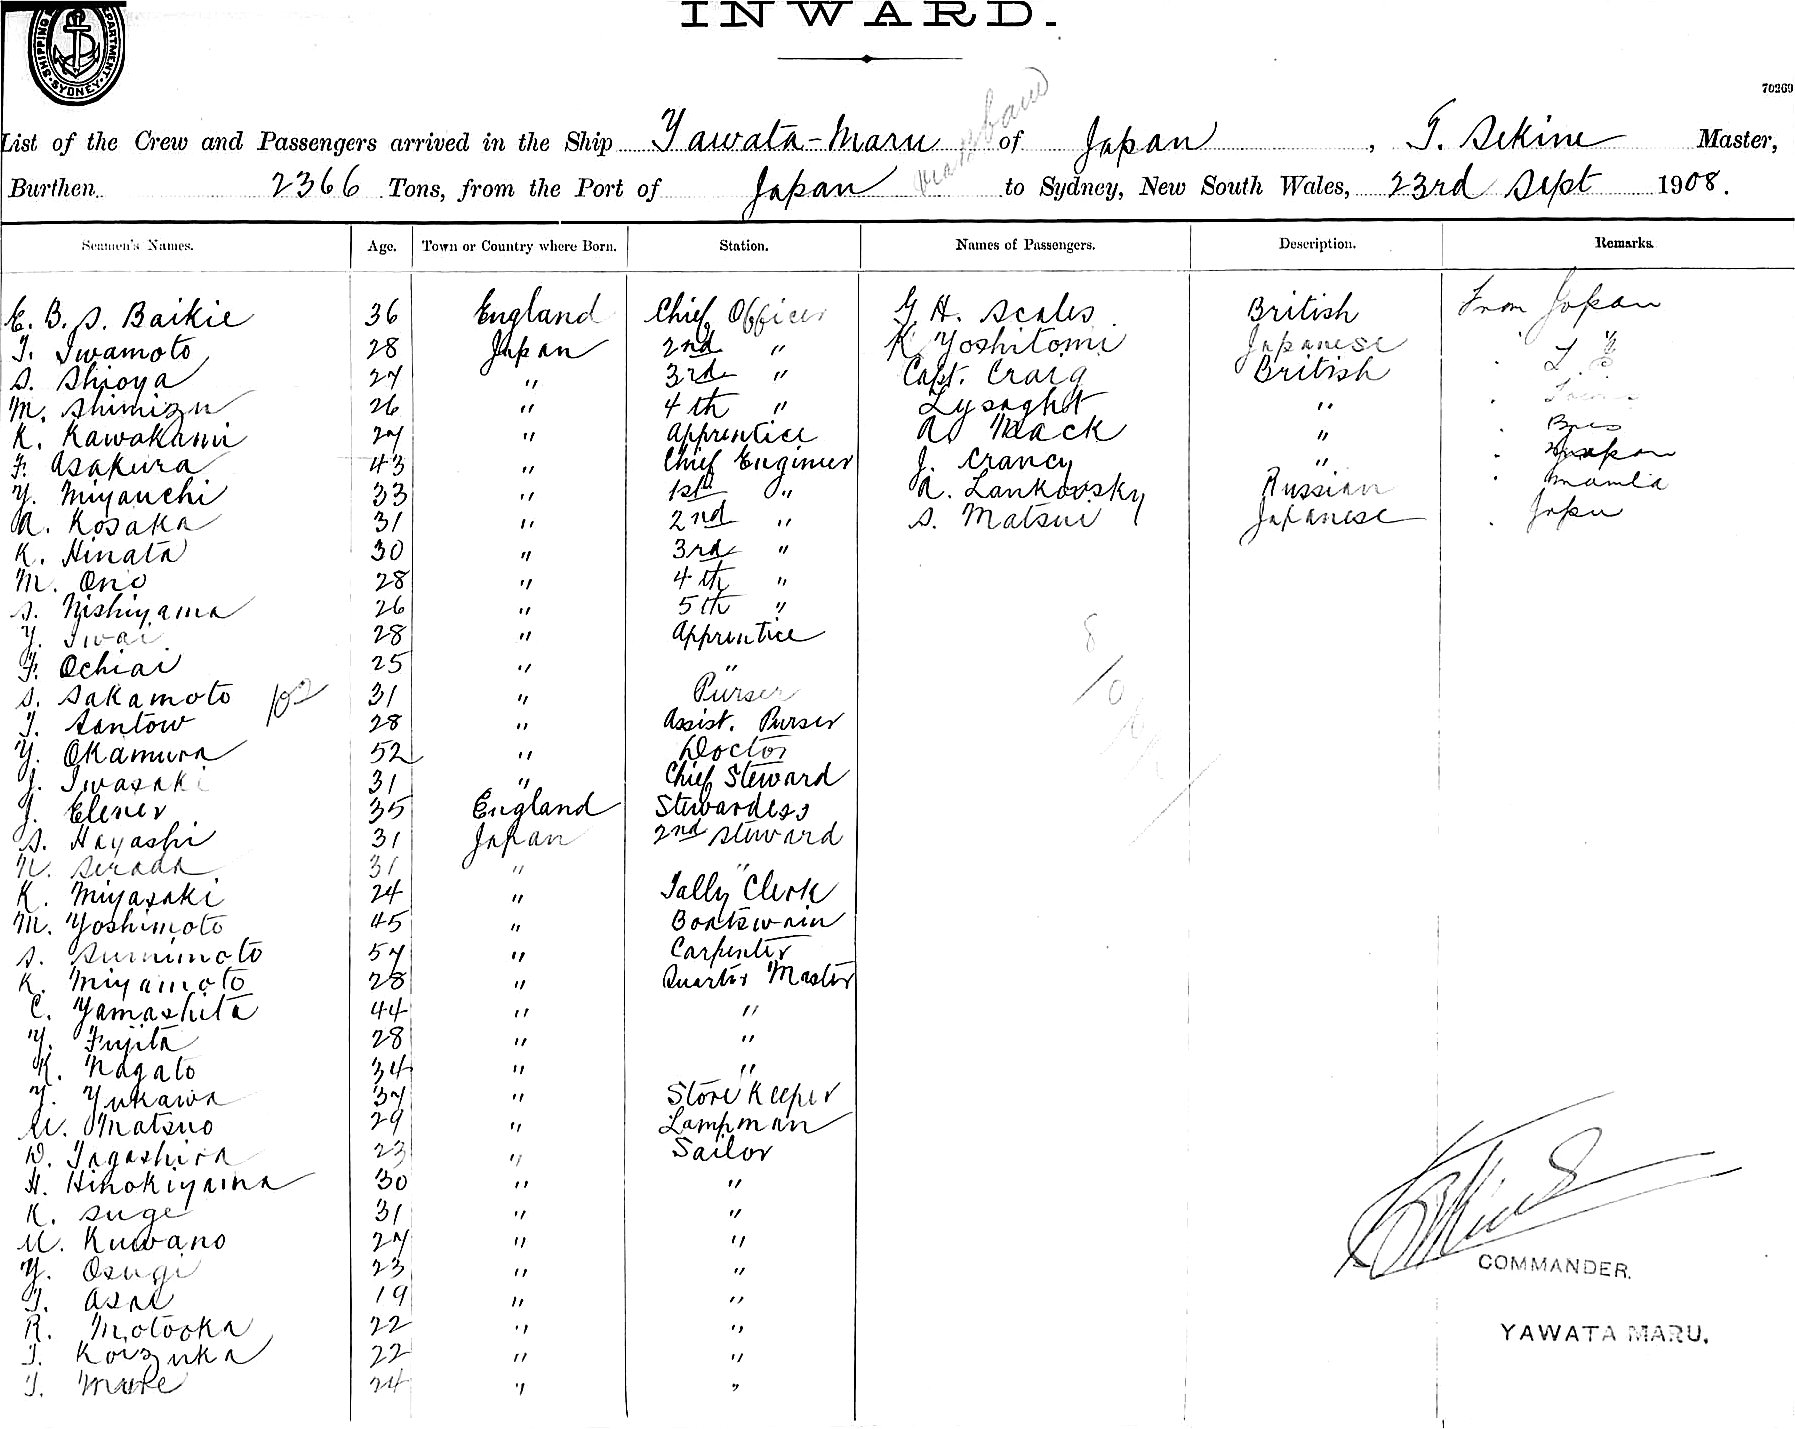 INWARD.
SHIPPING DEPARTMENT. SYDNEY.
70269
List of the Crew and Passengers arrived in the Ship Yawata-Maru of Japan, T. Sekine Master,
Burthen 2366 Tons, from the Port of Japan to Sydney, New South Wales, 23rd Sept 1908.
Seamen's Names. Age. Town or Country where Born. Station. Names of Passengers. Description. Remarks.
E. B. S. Baikie 36 England Chief Officer G. H. Scales British From Japan
T. Iwamoto 28 Japan 2nd " K. Yoshitomi Japanese
S. Shioya 27 " 3rd " Capt. Craig British
M. Shimizu 26 " 4th " Lysaght "
K. Kawakami 27 " Apprentice A. Mack "
F. Asakura 43 " Chief Engineer J. Crancy " Japan
Y. Miyauchi 33 " 1st " A. Lankovsky Russian Manila
A. Kosaka 31 " 2nd " S. Matsui Japanese Japn
K. Hinata 30 " 3rd "
M. Ono 28 " 4th "
S. Nishiyama 26 " 5th "
Y. Iwai 28 " Apprentice
F. Ochiai 25 " "
S. Sakamoto 102 31 " Purser
T. Santow 28 " Assist. Purser
Y. Okamura 52 " Doctor
J. Iwasaki 31 " Chief Steward
J. Elener 35 England Stewardess
S. Hayashi 31 Japan 2nd Steward
N. Serada 31 " "
K. Miyasaki 24 " Tally Clerk
M. Yoshimoto 45 " Boatswain
S. Sumimoto 57 " Carpenter
K. Miyamoto 28 " Quarter Master
C. Yamashita 44 " "
Y. Fujita 28 " "
K. Nagato 34 " "
Y. Yukawa 37 " Store Keeper
U. Matsuo 29 " Lampman
D. Tagashira 23 " Sailor
H. Hinokiyama 30 " "
K. Suge 31 " "
U. Kuwano 27 " "
Y. Osugi 23 " "
T. Asai 19 " "
R. Motooka 22 " "
T. Koizuka 22 " "
T. Mure 24 " "
COMMANDER.
YAWATA MARU.